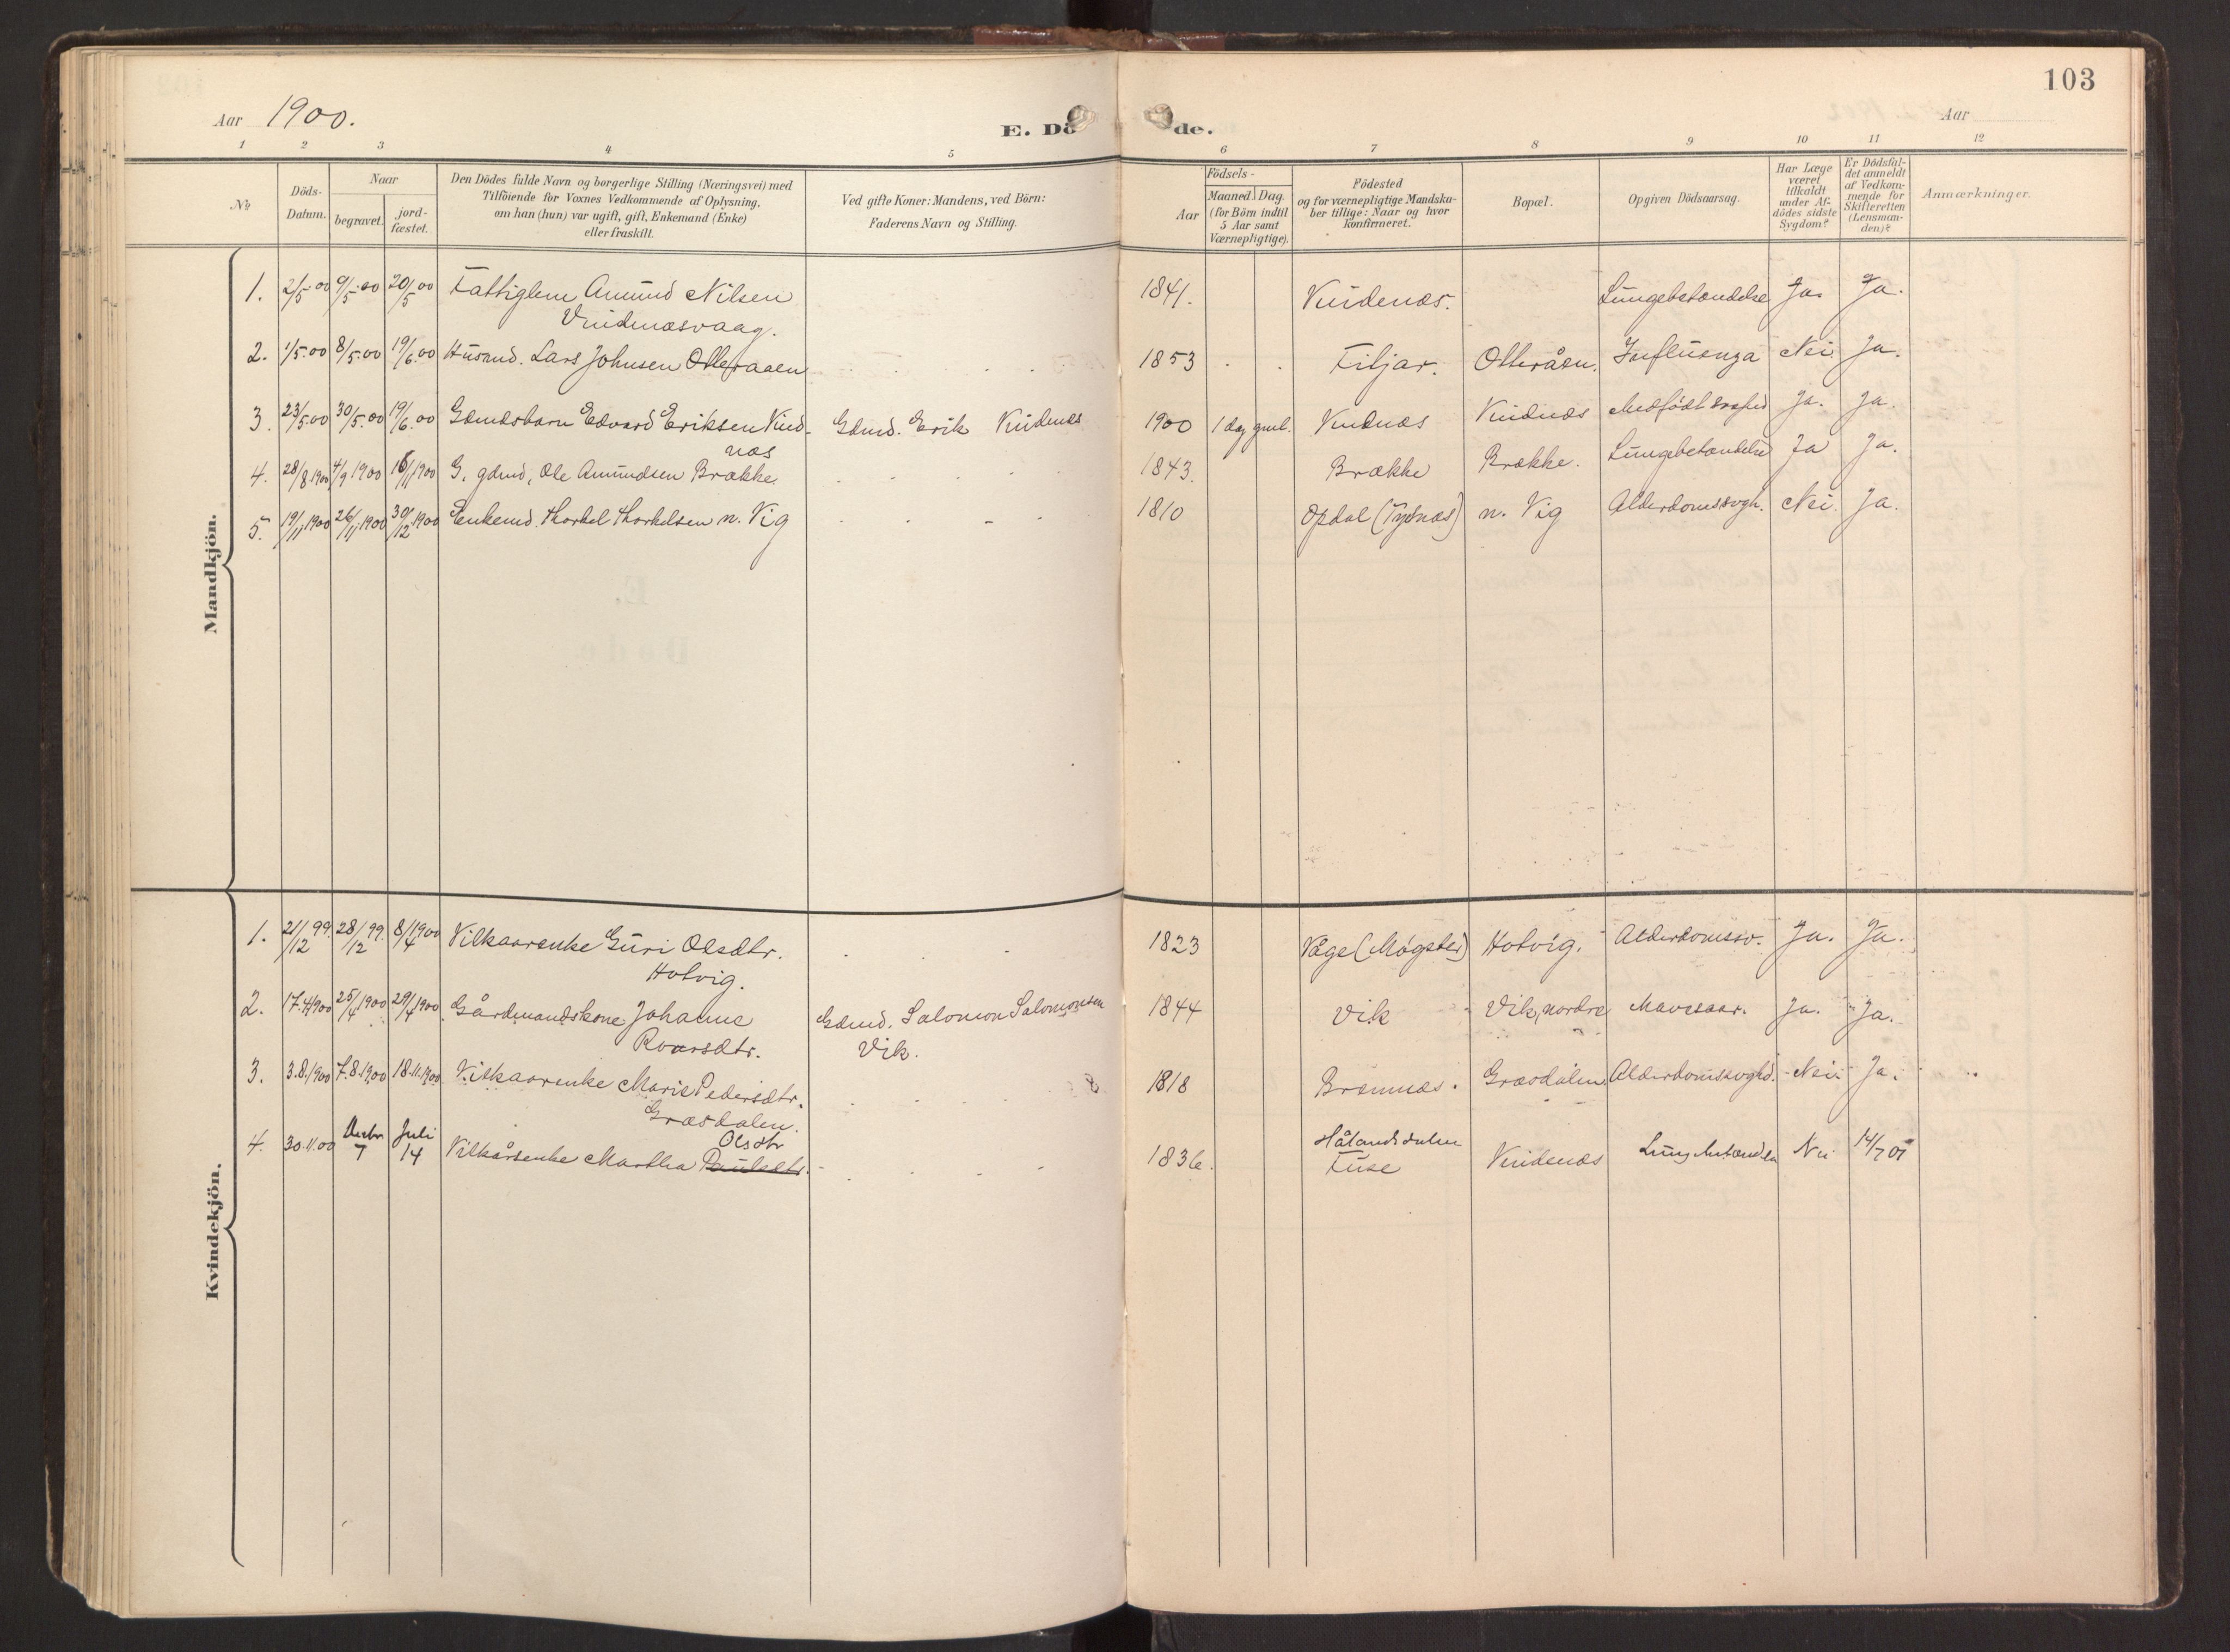 103
Aar 1900.
E. Dö de.
Aar
1 2 3 4 5 6 7 8 9 10 11 12
№
Döds-Datum.
Naar
begravet.
jord-fæstet.
Den Dödes fulde Navn og borgerlige Stilling (Næringsvei) med
Tilföiende for Voxnes Vedkommende af Oplysning,
om han (hun) var ugift, gift, Enkemand (Enke)
eller fraskilt.
Ved gifte Koner: Mandens, ved Börn:
Faderens Navn og Stilling.
Födsels-
Aar
Maaned. Dag.
(for Börn indtil
5 Aar samt
Værnepligtige).
Födested
og for værnepligtige Mandska-
ber tillige: Naar og hvor
konfirmeret.
Bopæl.
Opgiven Dödsaarsag.
Har Læge
været
tilkaldt
under Af-
dödes sidste
Sygdom?
Er Dödsfal-
det anmeldt
af Vedkom-
mende for
Skifteretten
(Lensman-
den)?
Anmærkninger.
Mandkjön.
1. 2/5.00 9/5.00 20/5.00 Fattiglem Amund Nilsen 1841. Vindenæs. Lungebetændelse Ja. Ja.
Vindenæsvaag.
2. 1/5.00 8/5.00 19/6.00 Husmd. Lars Johnsen Otteraaen 1853 Fitjar. Otteråen. Influenza Nei Ja.
3. 23/5.00 30/5.00 19/6.00 Gdmdsbarn Edvard Eriksen Vind- Gdmd. Erik Vindenæs 1900 1 dag gml. Vindnæs Vindnæs Medfödt svaghed Ja. Ja.
næs
4. 28/8.1900 4/9 1900 18/11 1900 G. gdmd, Ole Amundsen Brække 1843. Brække Brække. Lungebetændelse Ja Ja.
5. 19/11.1900 26/11.1900 30/12.1900 Enkemd. Thorkel Thorkelsen n. Vig 1810 Opdal (Tysnæs) n. Vig Alderdomssvgh. Nei. Ja.
Kvindekjön.
1. 21/12 99. 28/12 99. 8/4 1900 Vilkaarsenke Guri Olsdtr. 1823 Våge (Møgster) Hotvig. Alderdomssv. Ja. Ja.
Hotvig.
2. 17.4.1900 25/4 1900 29/4 1900 Gårdmandskone Johanne Gdmd. Salomon Salomonsen 1844 Vik Vik, nordre Mavesaar. Ja. Ja.
Roarsdtr. Vik.
3. 3.8.1900 7.8.1900 18.11.1900 Vilkaarsenke Marie Pedersdtr. 1818 Bremnæs. Græsdalen Alderdomssvaghd. Nei Ja.
Græsdalen.
Olsdtr
4. 30.11.00 Decbr 7 Juli 14 Vilkårsenke Martha Paulsdtr. 1836. Hålandsdalen Fuse Vindenæs Lungebetændelse Nei 14/7 01